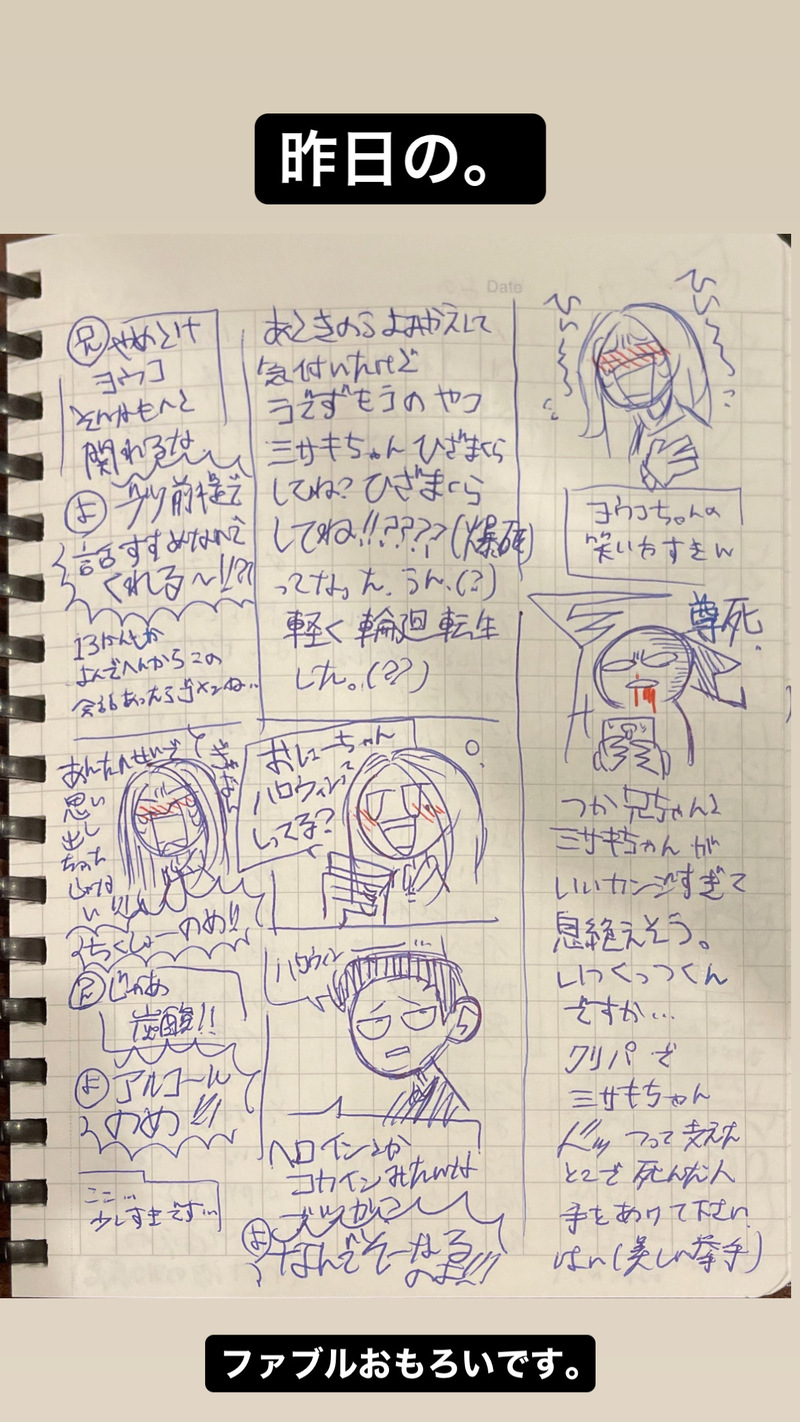 昨日の。
Date
兄 やめとけ
ヨウコ
そんなもんと
関れるな
よ ブツ前提で
話すすめないで
くれる〜!!?!
13かんしか
よんでへんからこの
あんたんせいで
思い
出し
ちゃった
じゃない
ちくしょーのめ!!
兄 じゃあ
炭酸!!
よ アルコール
のめ!!!
ここ…
少しすきです…
あときのうよみかえして
気付いたけど
うでずもうのやつ
ミサキちゃんひざまくら
してね?ひざまくら
してね!!????(爆死)
ってなった。うん。(?)
軽く輪廻転生
した。(??)
おにーちゃん
ハロウィンって
しってる?
ハロウィン…
ヘロインとか
コカインみたいな
ブツかこ
よ なんでそーなる
のよ!!!
ひぃ〜
ひぃ〜
ヨウコちゃんの
笑いかたすきん
尊死
つか兄ちゃんと
ミサキちゃんが
いいカンジすぎて
息絶えそう。
いつくっつくん
ですか…
クリパで
ミサキちゃん
ドンッつって支えた
とこで死んだ人
手をあけて下さい
はい(美しい挙手)
ファブルおもろいです。